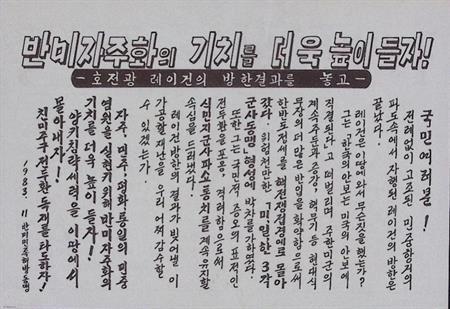 반미자주화의 기치를 더욱 높이 들자!
-호전광 레이건의 방한결과를 놓고-
국민여러분!
전례없이 고조된 민중항거의
파도속에서 자행된 레이건의 방한은
끝났다.
레이건은 이땅에와서 무슨짓을 했는가?
그는 한국의 안보는 미국의 안보에
직결된다고 떠벌리며 주한미군의
계속주둔과 증강, 핵무기 등 현대식
무장의 더 많은 반입을 확약함으로써
한반도정세를 핵전쟁접경에로 몰아
갔다. 위험천만한 《미일한》 3각
군사동맹 형성에 박차를 가하였다.
또한 그는 국민적 증오의 표적인
전두환을 포옹, 격려함으로써
식민지군사파쇼통치를 계속 유지할
속심을 드러냈다.
레이건방한의 결과가 빚어낸 이
가공할 재난을 우리 어찌 감수할
수 있겠는가
자주, 민주, 평화통일의 민중
염원을 실현키 위해 반미자주화의
기치를 더욱 높이 들자!
양키침략세력을 이 땅에서
몰아내자!
친미주구 전두환 독재를 타도하자!
1983. 11 반미민족해방동맹